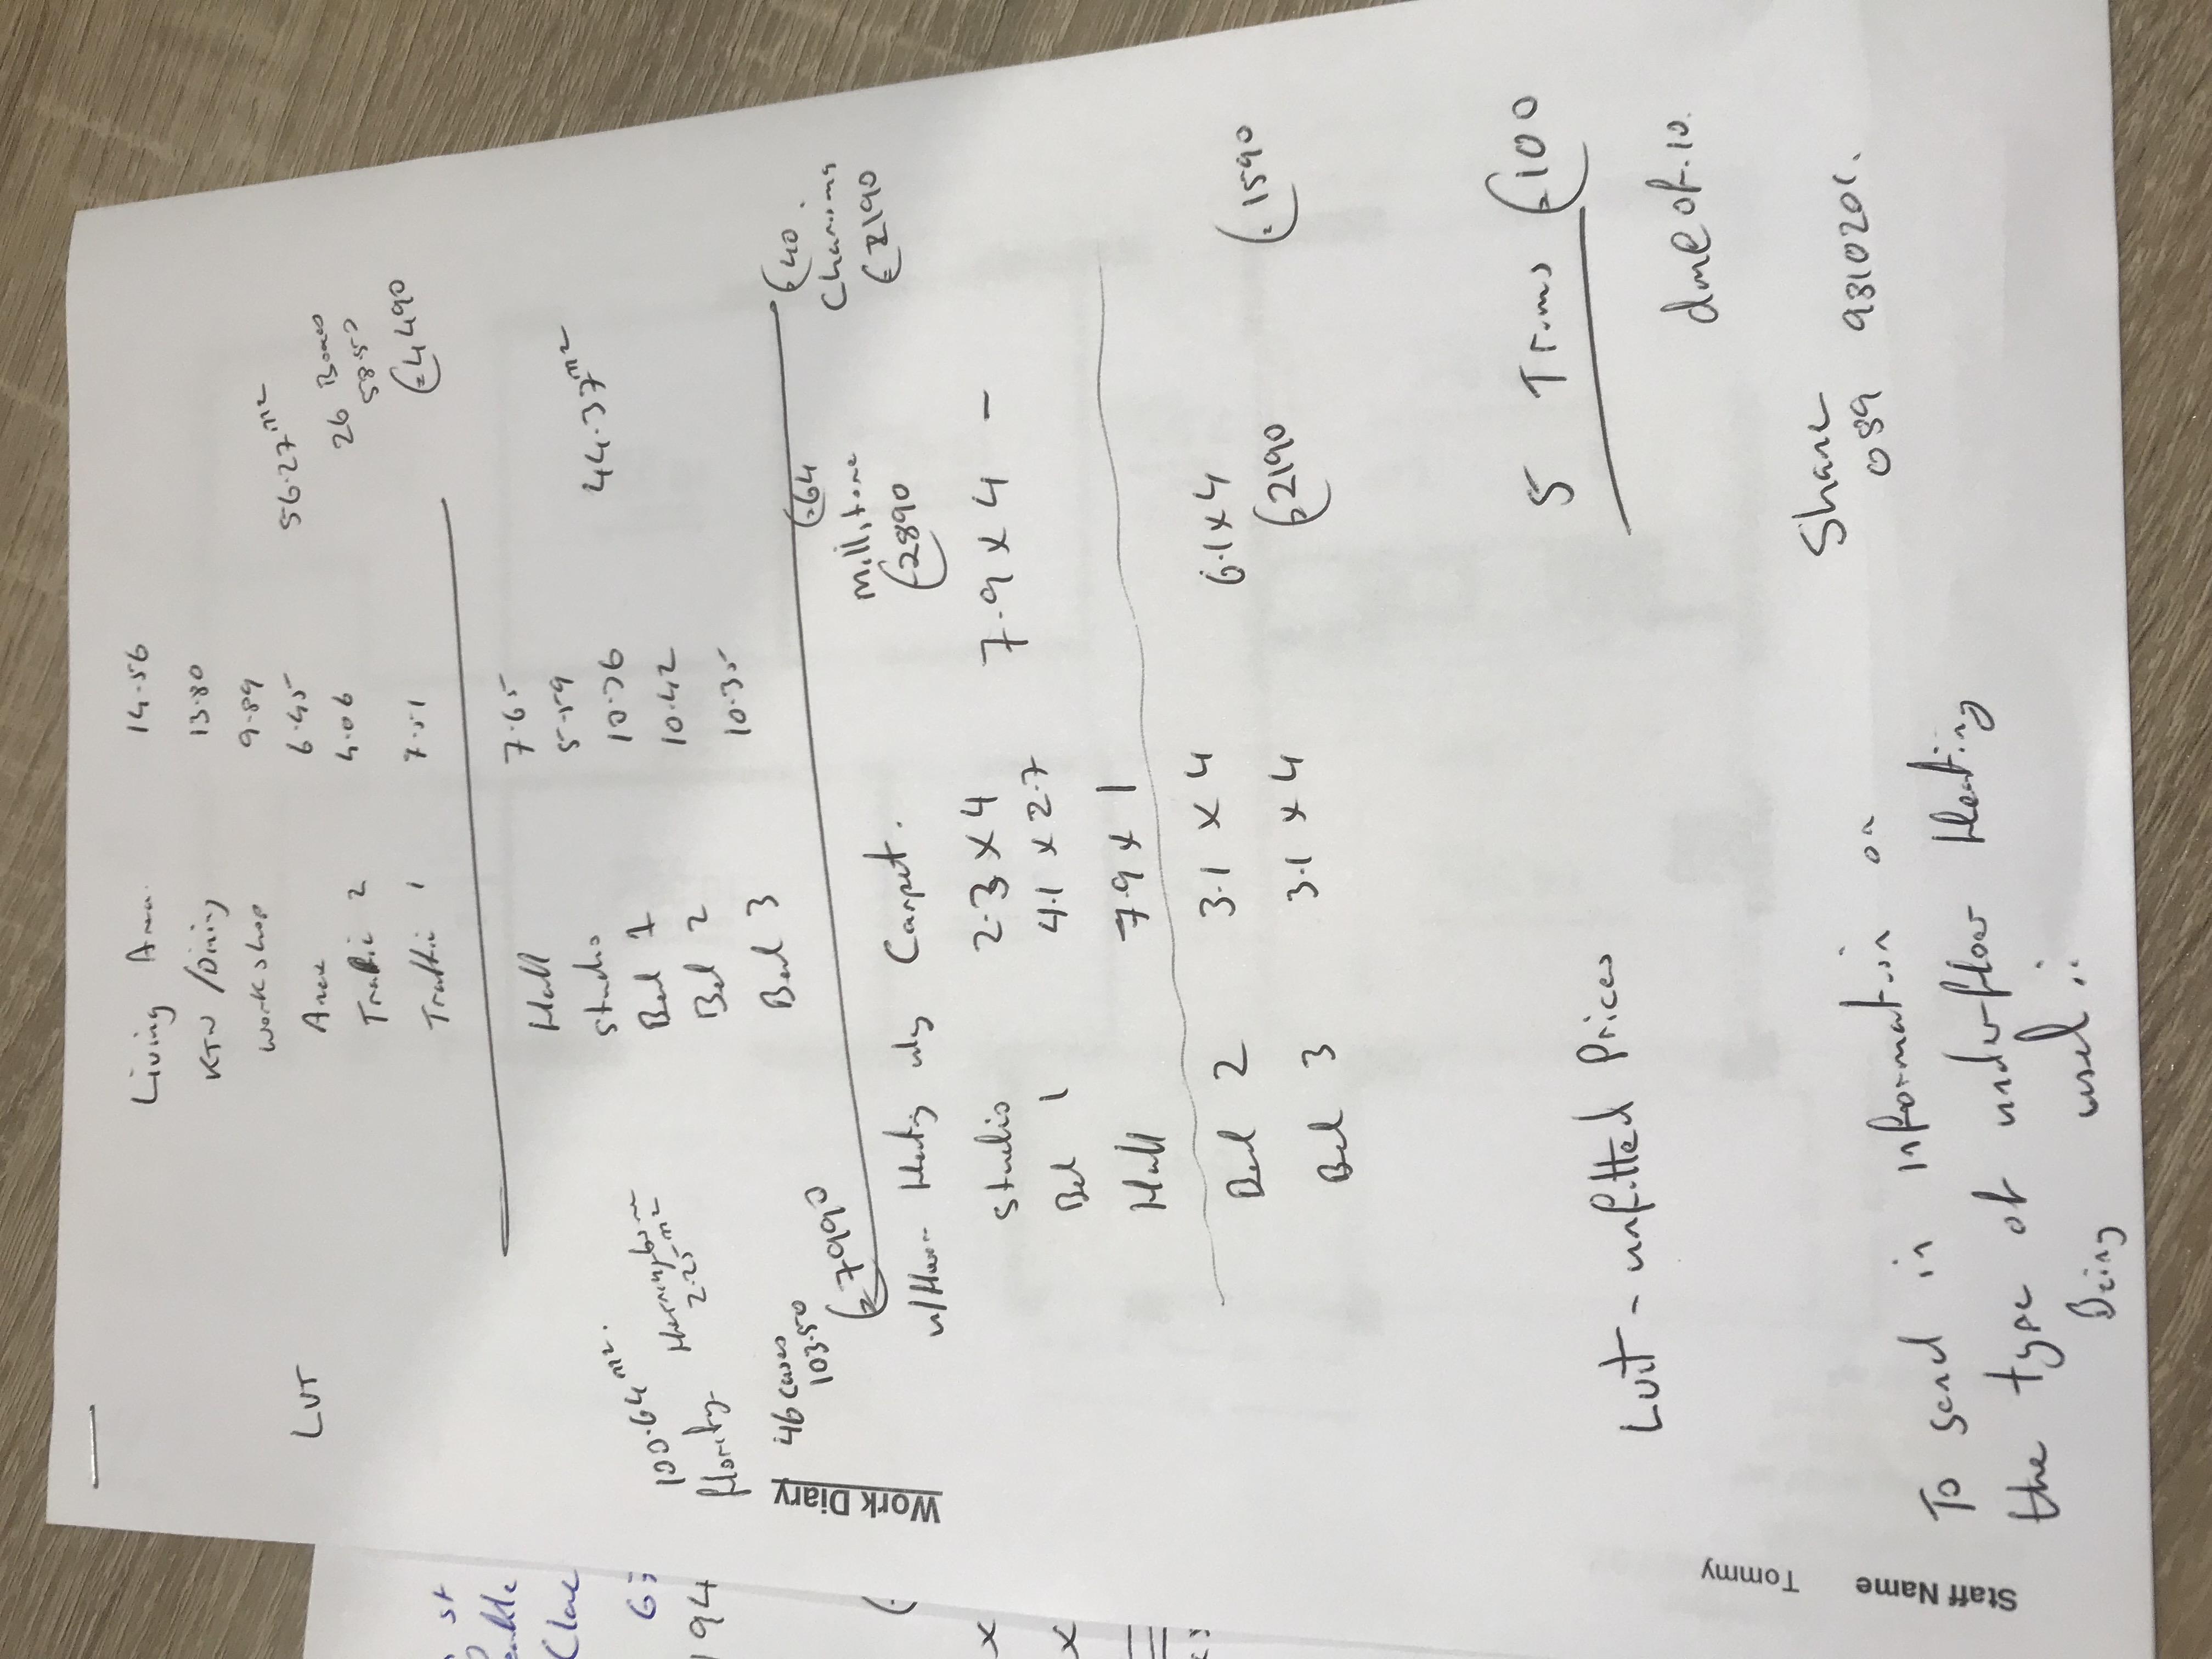 Living Area 14.56
KTN/Dining 13.80
Workshop 9.89
LVT Area 6.45 56.27m²
Traffic 2 4.06 26 Boxes
58.50
Traffic 1 7.51 €4490
Hall 7.65
Studio 5.59 44.37m²
Bed 1 10.36
Bed 2 10.42
Bed 3 10.35
100.64m².
Floority Herringbone
2.25m²
46 cases
103.50
€7990
€64 €40.
Millstone Charisma
€2890 €2190
u/floor Heating u/lay Carpet.
Studio 2.3 x 4 7.9 x 4 -
Bed 1 4.1 x 2.7
Hall 7.9 x 1
Bed 2 3.1 x 4 6.1 x 4
Bed 3 3.1 x 4 €2190 €1590
LVT - unfitted Prices 5 Trims €100
To send in information on Shane
the type of underflow Heating 089
Being used.
Work Diary
Staff Name
Tommy
st
Clare
194
x
x